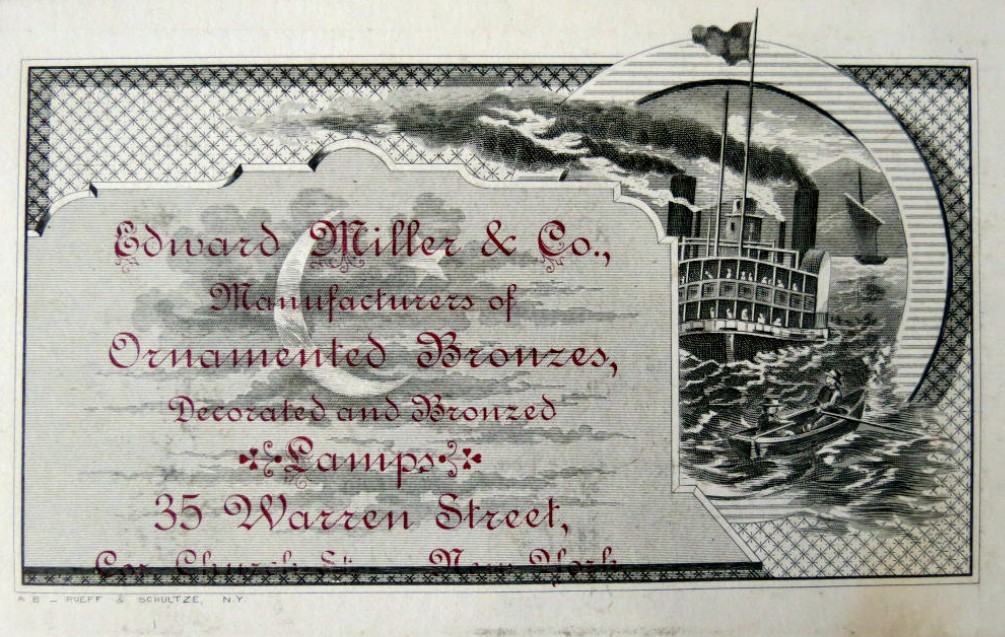 Edward Miller & Co.,
Manufacturers of
Ornamented Bronzes,
Decorated and Bronzed
Lamps
35 Warren Street,
Cor. Church St. New York
A B – RUEFF & SCHULTZE, N.Y.